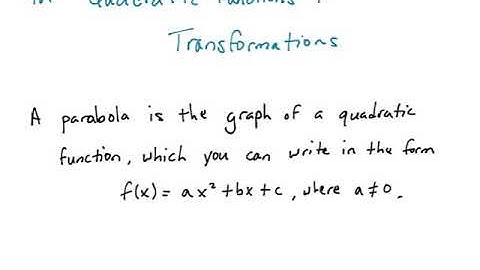 Quadratic Functions
Transformations
A parabola is the graph of a quadratic
function, which you can write in the form
f(x) = ax² + bx + c, where a ≠ 0.